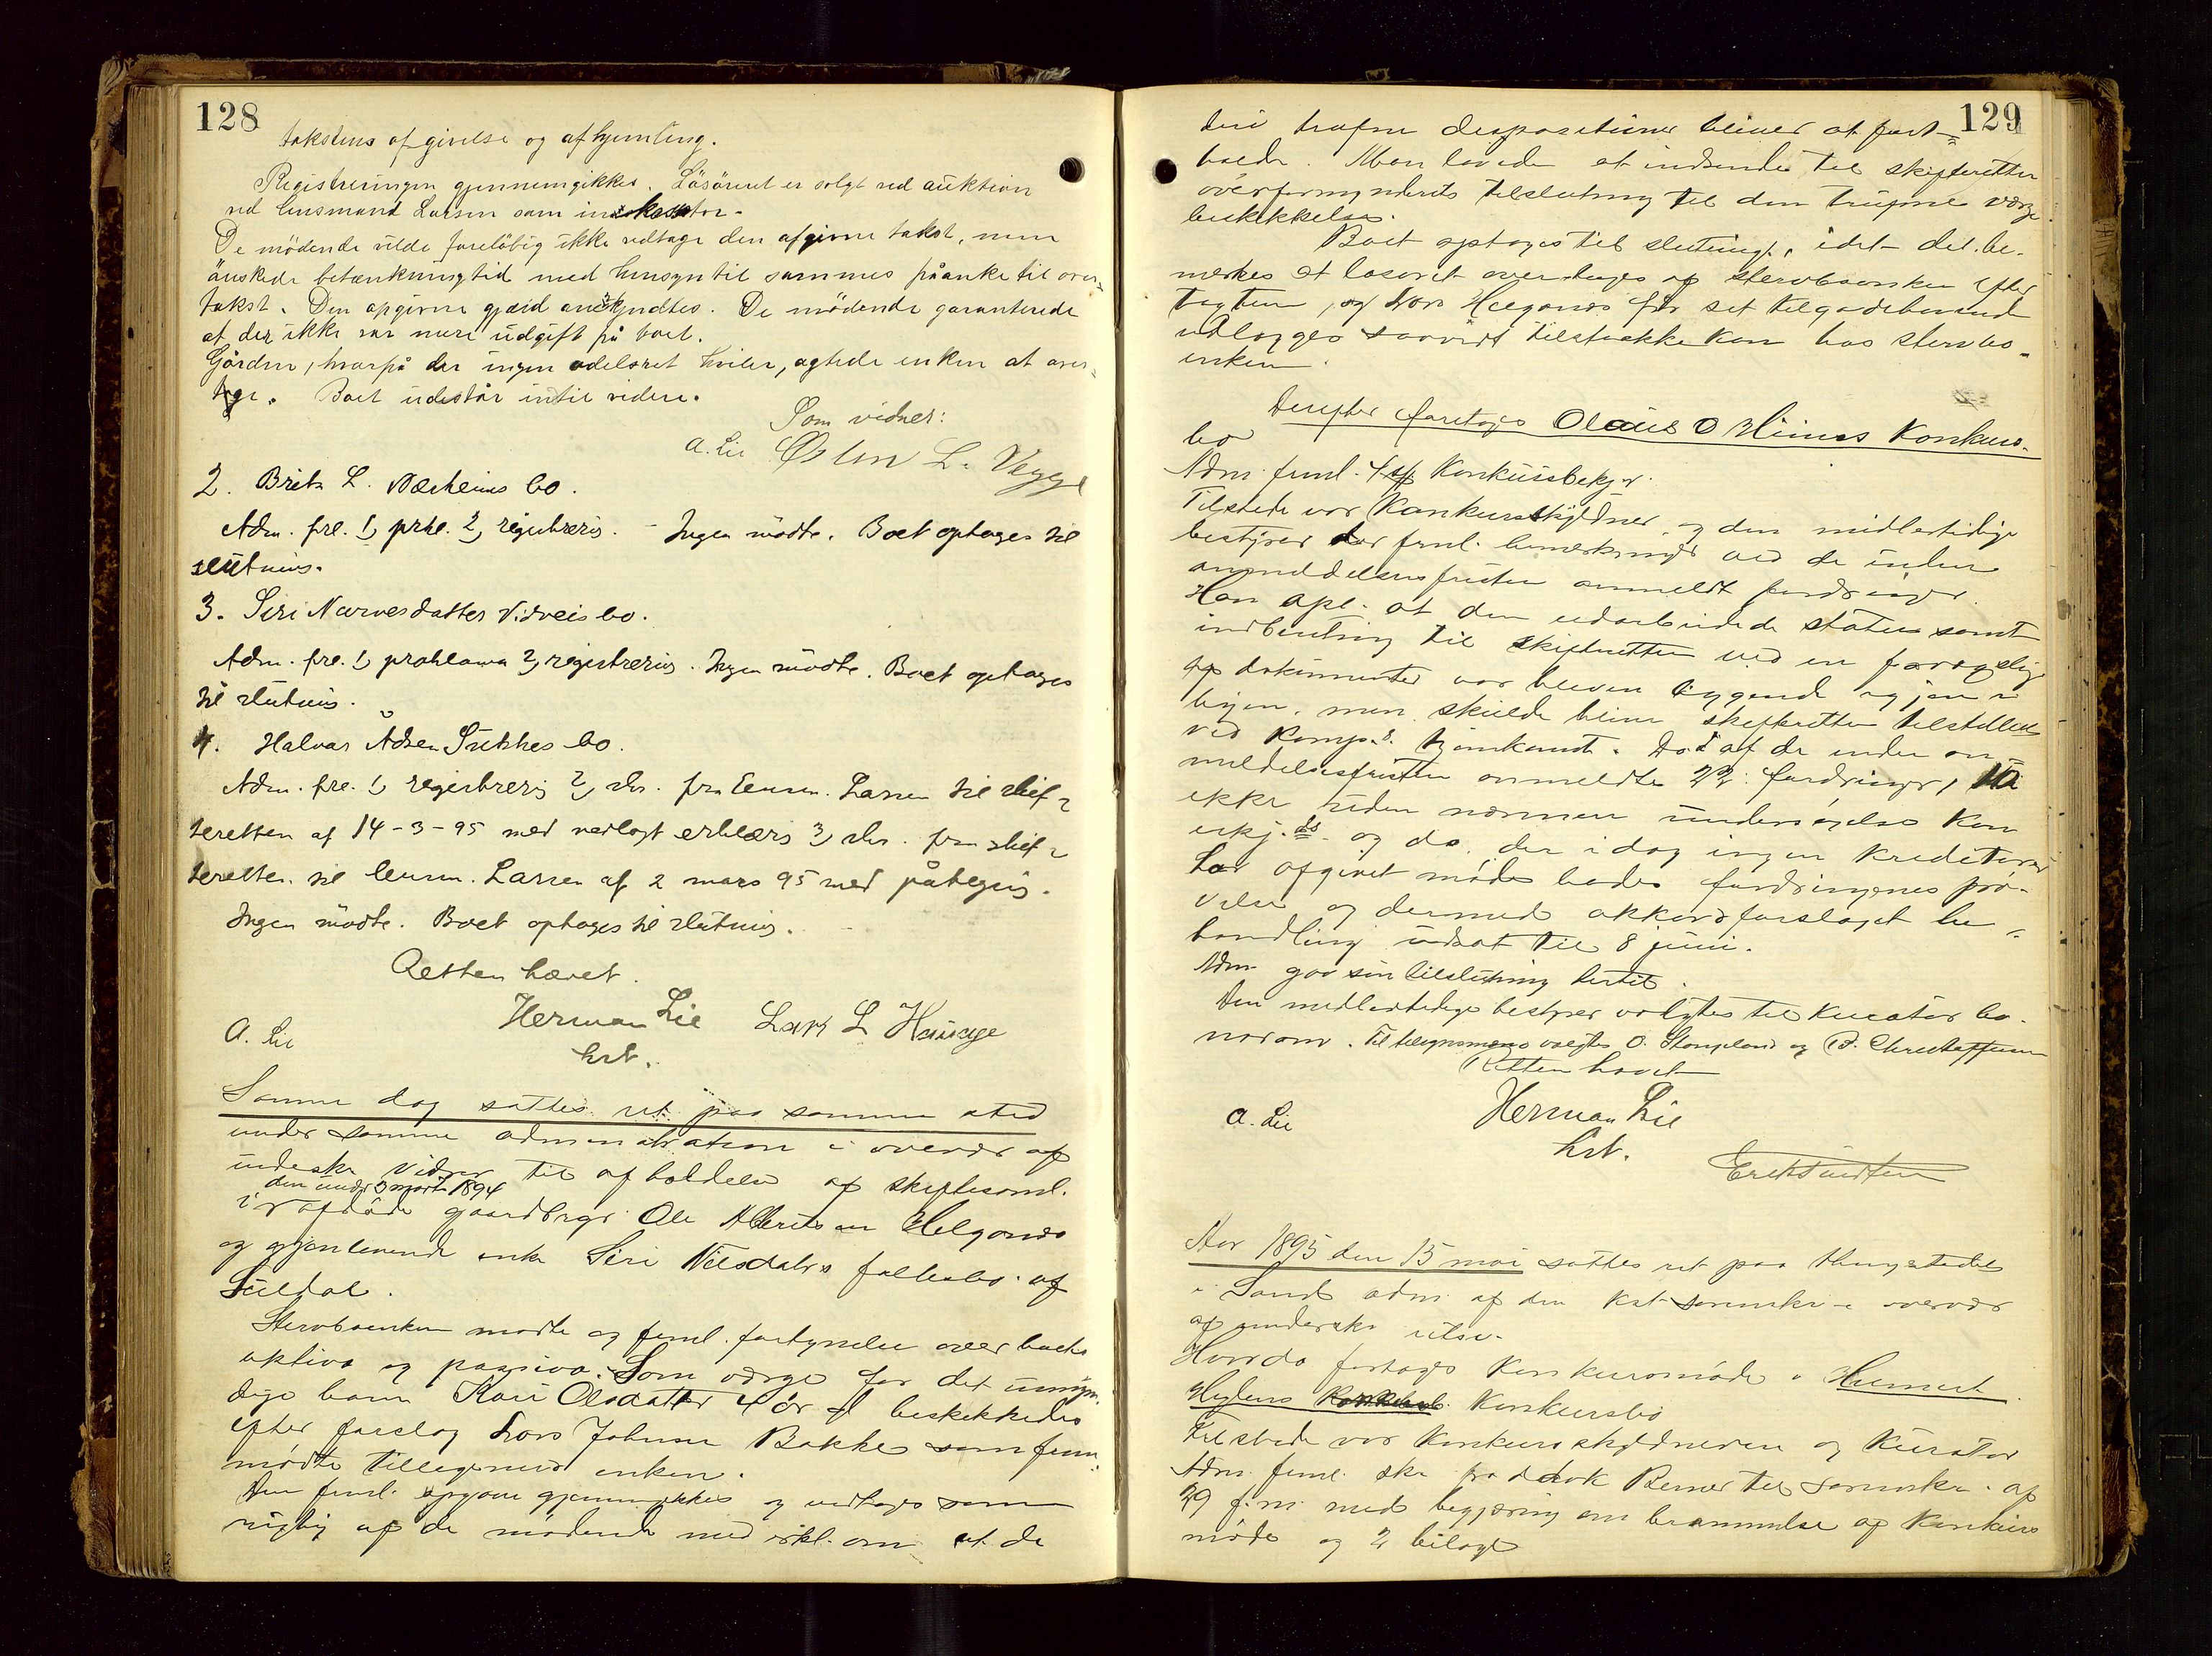 128
takstens afgivelse og afhjemling.
Registreringen gjennemgikkes. Lösöret er solgt ved auktion
ved lensmand Larsen som inkassator.
De mödende vilde foreløbig ikke vedtage den afgivne takst, men
önskede betænkningstid med hensyn til sammes påanke til over=
takst. Den opgivne gjæld anerkjendtes. De mödende garanterede
at der ikke var mere udgift på boet.
Gården, hvorpå der ingen odelsret hviler, agtede enken at over=
tage. Boet udestår indtil videre.
Som vidner:
A. Lie Østen L. Vegge
2. Brita L. Væsheims bo.
Adm. fre. 1, prkl. 2, registrering. - Ingen mödte. Boet optages til
slutning.
3. Siri Narvesdatter Vidveis bo.
Adm. fre. 1, proklama 2, registrering. Ingen mödte. Boet optages
til slutning.
4. Halvar Adsen Sukkes bo.
Adm. fre. 1, registrering 2, skr. fra lensm. Larsen til skif=
teretten af 14-3-95 med vedlagt erklæring 3, skr. fra skif=
teretten til lensm. Larsen af 2 mars 95 med påtegning.
Ingen mödte. Boet optages til slutning.
Retten hævet.
A. Lie Herman Lie Lars L Hauage
hrt.
Samme dag sattes ret paa samme sted
under samme administration i overvær af
undeskr. vidner til afholdelse af skiftesaml.
den under 3 marts 1894
i afdøde gaardbrgr. Ole Albretsen Helganes
og gjenlevende enke Siri Nilsdatters fællesbo af
Suldal.
Stervboenken mødte og freml. fortegnelse over boets
aktiva og passiva. Som værge for det umyn=
dige barn Kari Olsdatter 4 år gl beskikkedes
efter forslag Lars Johnsen Bakke som frem=
mødte tilligemed enken.
Den freml. opgave gjennemgikkes og vedtoges som
rigtig af de mødende med erkl. om at de
129
deri trufne dispositioner bliver at fast=
holde. Man lovede at indsende til skifteretten
overformynderiets tilslutning til den trufne værge
beskikkelse.
Boet optages til slutning, idet det be-
mærkes at løsøret overtages af stervboenken efter
taxten, og Lars Helganes får sit tilgodehavende
udlægges saavidt tilstrække kan hos stervbo=
enken.
Derefter foretoges Olaus O Hiims Konkurs-
bo
Adm. freml. 1 exp Konkursbekjg.
Tilstede var Konkursskyldner og den midlertidige
bestyrer der freml. bemærkninger ved de inden
anmeldelsesfristen anmeldte fordringer.
Han opl. at den udarbeidede status samt
indberetning til skifteretten ved en forvexling
af dokumenter var bleven liggende igjen i
byen, men skulde blive skifteretten tilstillet
ved komp.s hjemkomst. Da af de inden an=
meldelsesfristen anmeldte 22 fordringer, 10
ikke uden nærmere undersøgelse kan
erkj.des og da der i dag ingen kreditorer
har afgivet møde bades fordringernes prø-
velse og dermed akkordforslaget be=
handling udsat til 8 juni.
Adm gav sin tilslutning hertil.
Den midlertidige bestyrer valgtes til kurator bo-
norum. Til tilsynsmænd valgtes O. Stangeland og B. Christoffersen
Retten hævet
A. Lie Herman Lie
hrt.
Erik Knudsen
Aar 1895 den 15 mai sattes ret paa thingstedet
i Sand adm af den kst. sorenskr. i overvær
af underskr. vitne.
Hvorda foretoges Konkursmøde i Helmert
Hylens Konkursbo
Tilstede var Konkursskyldneren og Kurator
Adm. freml. skr fra advok Berner til sorenskr. af
29 f.m. med begjæring om berammelse af Konkurs
møde og 2 bilage